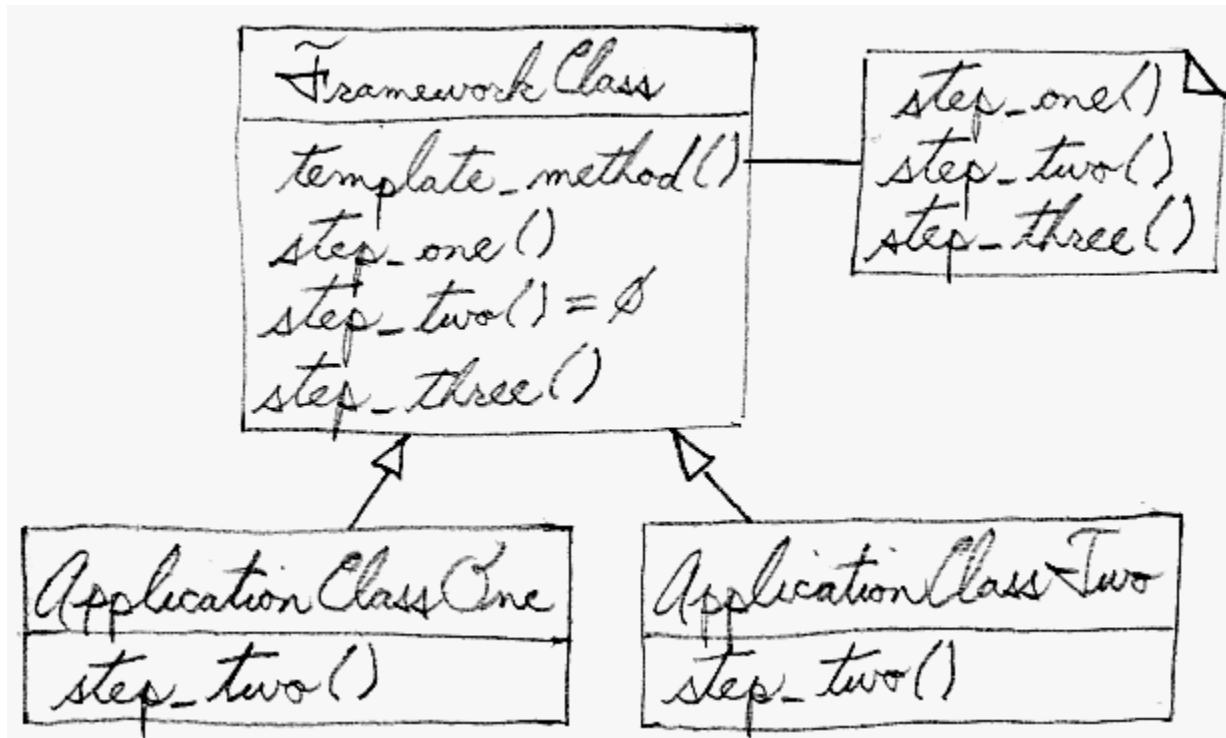 FrameworkClass
template_method()
step_one()
step_two() = 0
step_three()
step_one()
step_two()
step_three()
ApplicationClassOne
step_two()
ApplicationClassTwo
step_two()